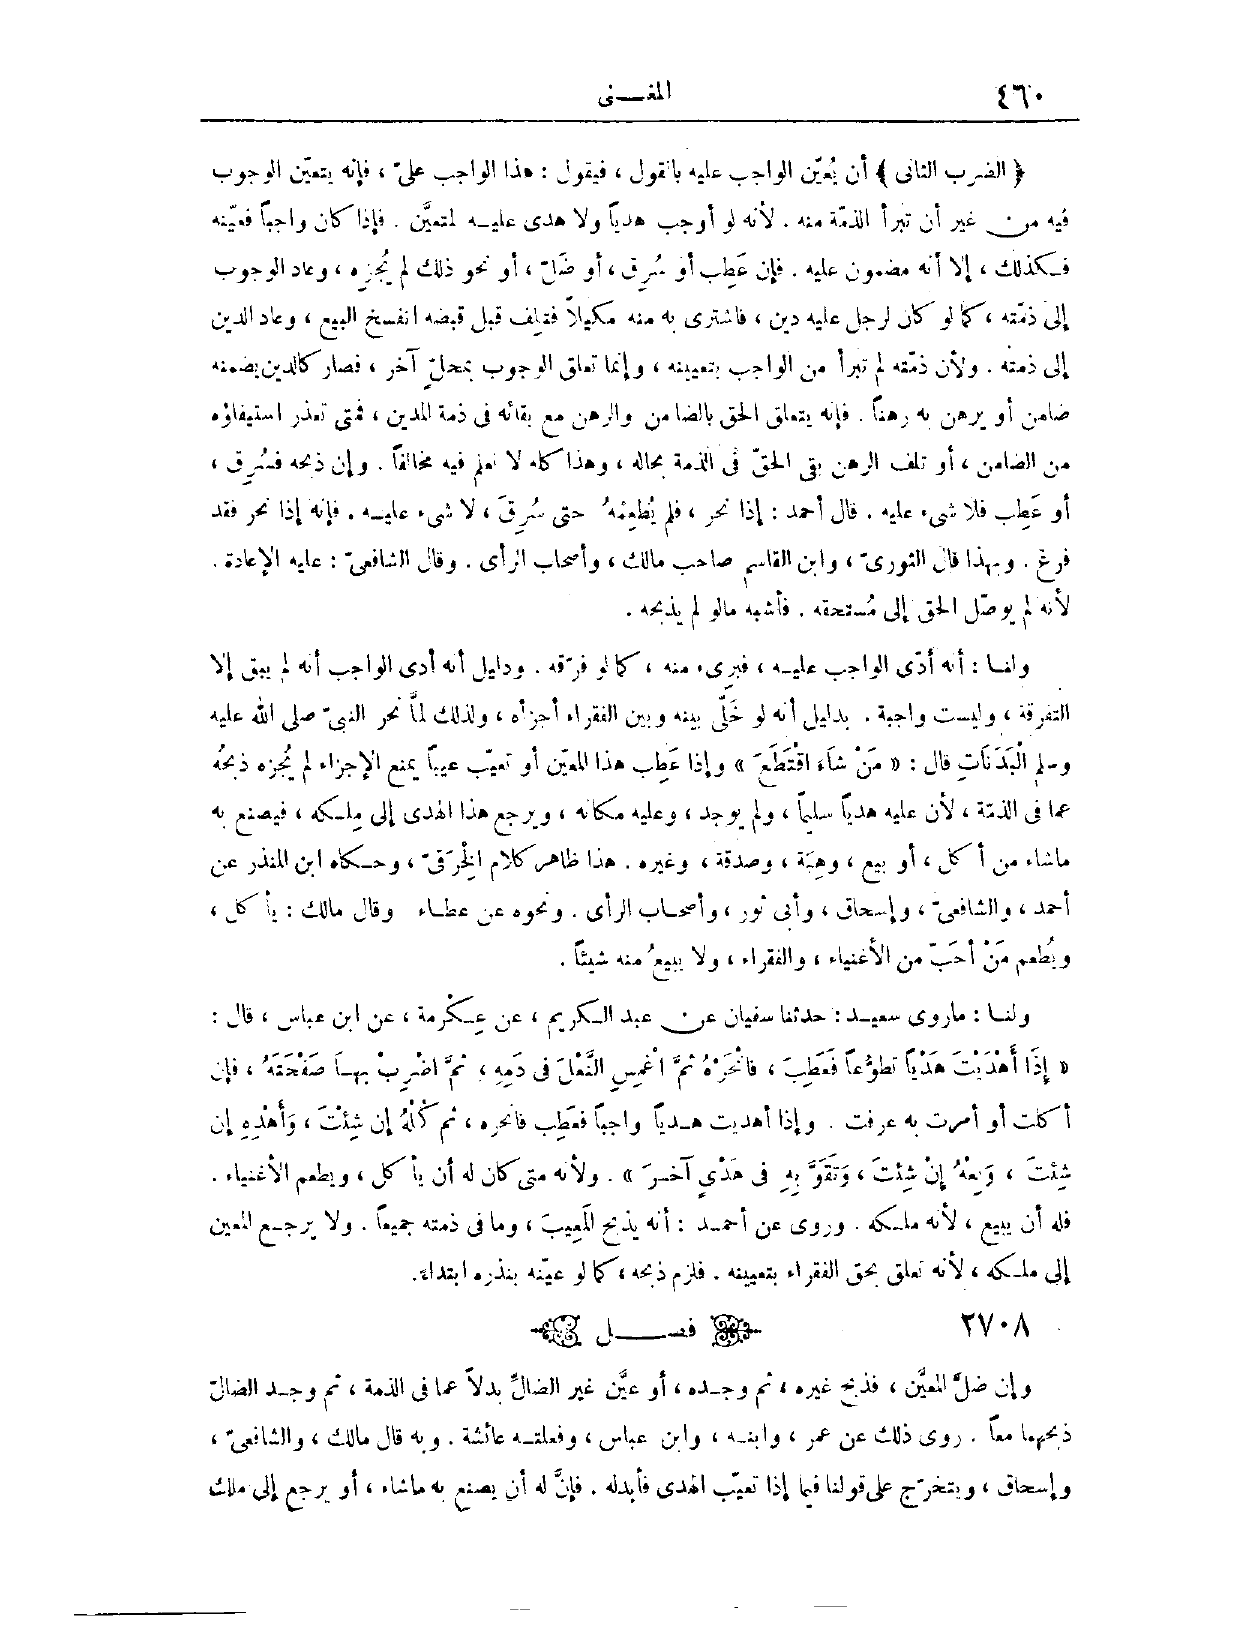 ٤٦٠
المغـــنى
﴿ الضرب الثانى ﴾ أن يُعيّن الواجب عليه بالقول ، فيقول : هذا الواجب علىّ ، فإنه يتعيّن الوجوب
فيه من غير أن تبرأ الذمّة منه . لأنه لو أوجب هدياً ولا هدى عليـه لتعيَّن . فإذا كان واجباً فعيّنه
فـكذلك ، إلا أنه مضمون عليه . فإن عَطِب أو سُرِق ، أو ضَلّ ، أو نحو ذلك لم يُجزِه ، وعاد الوجوب
إلى ذمّته ، كما لو كان لرجل عليه دين ، فاشترى به منه مكيلاً فتلِف قبل قبضه انفسخ البيع ، وعاد الدين
إلى ذمته . ولأن ذمّته لم تبرأ من الواجب بتعيينه ، وإنما تعلق الوجوب بمحلٍّ آخر ، فصار كالدين يضمنه
ضامن أو يرهن به رهناً . فإنه يتعلق الحق بالضامن والرهن مع بقائه فى ذمة المدين ، فمتى تعذر استيفاؤه
من الضامن ، أو تلف الرهن بقى الحقّ فى الذمة بحاله ، وهذا كله لا نعلم فيه مخالفاً . وإن ذبحه فسُرِق ،
أو عَطِب فلا شىء عليه . قال أحمد : إذا نحر ، فلم يُطعِمْهُ حتى سُرِقَ ، لا شىء عليـه . فإنه إذا نحر فقد
فرغ . وبهذا قال الثورىّ ، وابن القاسم صاحب مالك ، وأصحاب الرأى . وقال الشافعىّ : عليه الإعادة .
لأنه لم يوصّل الحق إلى مُستحقه . فأشبه مالو لم يذبحه .
ولنـا : أنه أدّى الواجب عليـه ، فبرِىء منه ، كما لو فرّقه . ودليل أنه أدى الواجب أنه لم يبق إلا
التفرقة ، وليست واجبة . بدليل أنه لو خَلّى بينه وبين الفقراء أجزأه ، ولذلك لمَّا نحر النبىّ صلى الله عليه
وسلم الْبَدَنَاتِ قال : « مَنْ شَاءَ اقْتَطَعَ » وإذا عَطِب هذا المعيّن أو تعيّب عيباً يمنع الإجزاء لم يُجزه ذبحُه
عما فى الذمّة ، لأن عليه هدياً سليماً ، ولم يوجد ، وعليه مكانه ، ويرجع هذا الهدى إلى مِلـكه ، فيصنع به
ماشاء من أكل ، أو بيع ، وهِبَة ، وصدقة ، وغيره . هذا ظاهر كلام الخِرَقىّ ، وحـكاه ابن المنذر عن
أحمد ، والشافعىّ ، وإسحاق ، وأبى ثور ، وأصحاب الرأى . ونحوه عن عطاء وقال مالك : يأكل ،
ويُطعم مَنْ أحَبّ من الأغنياء ، والفقراء ، ولا يبيعُ منه شيئاً .
ولنـا : ماروى سعيـد : حدثنا سفيان عن عبد الـكريم ، عن عِـكْرمة ، عن ابن عباس ، قال :
« إِذَا أَهْدَيْتَ هَدْيًا تطوُّعاً فَعَطِبَ ، فَانْحَرْهُ ثمَّ اغْمِسِ النَّعْلَ فى دَمِهِ ، ثمَّ اضْرِبْ بهـا صَفْحَتَهُ ، فإن
أكلت أو أمرت به عرفت . وإذا أهديت هـدياً واجباً فعَطِب فانحره ، ثم كُلْهُ إن شِئتَ ، وَأَهْدِهِ إن
شِئتَ ، وَبِعْهُ إنْ شِئتَ ، وَتَقَوَّ بِهِ فى هَدْىٍ آخـرَ » . ولأنه متى كان له أن يأكل ، ويطعم الأغنياء .
فله أن يبيع ، لأنه ملـكه . وروى عن أحمـد : أنه يذبح المَعِيبَ ، وما فى ذمته جميعاً . ولا يرجـع المعين
إلى ملـكه ، لأنه تعلق بحق الفقراء بتعيينه . فلزم ذبحه ، كما لو عيّنه بنذره ابتداءً .
٢٧٠٨
فصـــل
وإن ضلَّ المعيَّن ، فذبح غيره ، ثم وجـده ، أو عيَّن غير الضالِّ بدلاً عما فى الذمة ، ثم وجـد الضالّ
ذبحهما معاً . روى ذلك عن عمر ، وابنـه ، وابن عباس ، وفعلتـه عائشة . وبه قال مالك ، والشافعىّ ،
وإسحاق ، ويتخرّج على قولنا فيما إذا تعيّب الهدى فأبدله . فإنَّ له أن يصنع به ماشاء ، أو يرجع إلى ملك